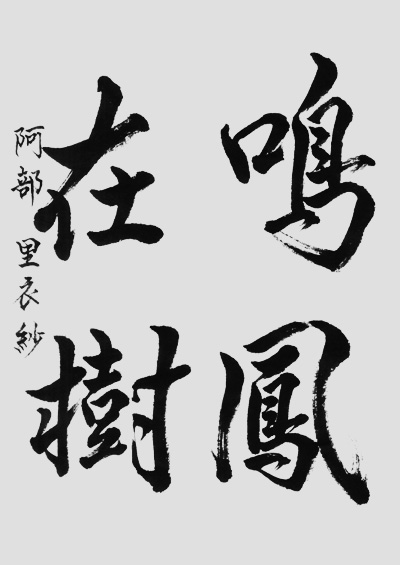 鳴鳳
在樹
阿部里衣紗